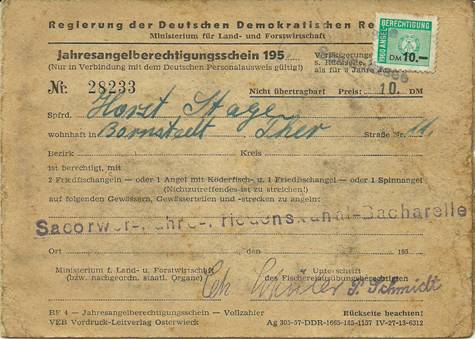 Regierung der Deutschen Demokratischen Re
Ministerium für Land- und Forstwirtschaft
1960 ANGEL- BERECHTIGUNG
DM 10.—
Jahresangelberechtigungsschein 195
(Nur in Verbindung mit dem Deutschen Personalausweis gültig!)
Verlängerung
s. Rückseite,
als für 3 Jahre
Nr. 28233 Nicht übertragbar! Preis: 10. DM
Spfrd. Horst Stage
wohnhaft in Bornstedt Straße Nr. 11.
Bezirk Kreis
ist berechtigt, mit
2 Friedfischangeln — oder 1 Angel mit Köderfisch- u. 1 Friedfischangel — oder 1 Spinnangel
(Nichtzutreffendes ist zu streichen!)
auf folgenden Gewässern, Gewässerteilen und -strecken zu angeln:
Ort den 195
Ministerium f. Land- u. Forstwirtschaft
(bzw. nachgeordn. staatl. Organe)
Unterschrift
des Fischereiausübungsberechtigten
P. Schmidt
BF 4 — Jahresangelberechtigungsschein — Vollzahler
VEB Vordruck-Leitverlag Osterwieck
Rückseite beachten!
Ag 305-57-DDR-1665-185-1157 IV-27-13-6312